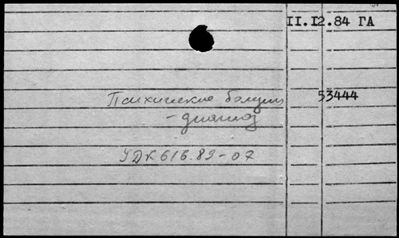 II.I2.84 ГА
Психические болезни 53444
- диагноз
УДК 616.89-07